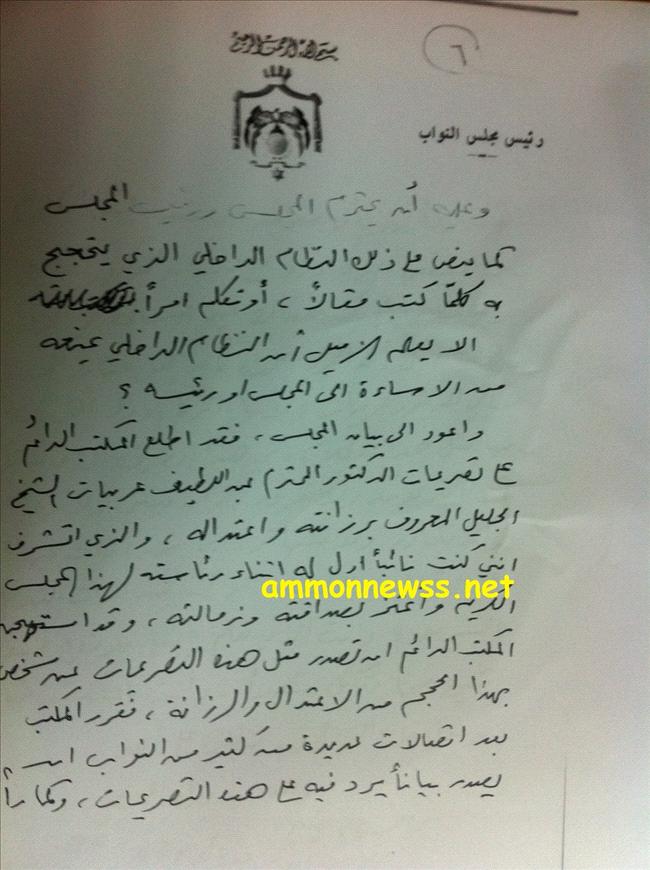 ٦
بسم الله الرحمن الرحيم
رئيس مجلس النواب
وعليه أن يحترم المجلس ورئيس المجلس
كما ينص على ذلك النظام الداخلي الذي يتحجج
به كلما كتب مقالاً ، أو تكلم امرأ
الا يعلم الزميل أن النظام الداخلي يمنعه
من الاساءة الى المجلس او رئيسه ؟
واعود الى بيان المجلس ، فقد اطلع المكتب الدائم
على تصريحات الدكتور المحترم عبد اللطيف عربيات الشيخ
الجليل المعروف برزانته واعتداله ، والذي اتشرف
انني كنت نائباً اول له اثناء رئاسته لهذا المجلس
الكريم واعتز بصداقته وزمالته ، وقد استهجن
المكتب الدائم ان تصدر مثل هذه التصريحات عن شخص
بهذا الحجم من الاعتدال والرزانة ، فقرر المكتب
بعد اتصالات عديدة من كثير من النواب ان
يصدر بياناً يرد فيه على هذه التصريحات ، وكما
ammonnewss.net